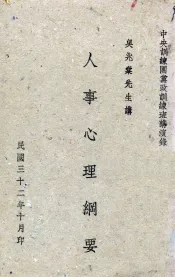 中央訓練團黨政訓練班講演錄
吳兆棠先生講
人事心理綱要
民國三十二年十月印